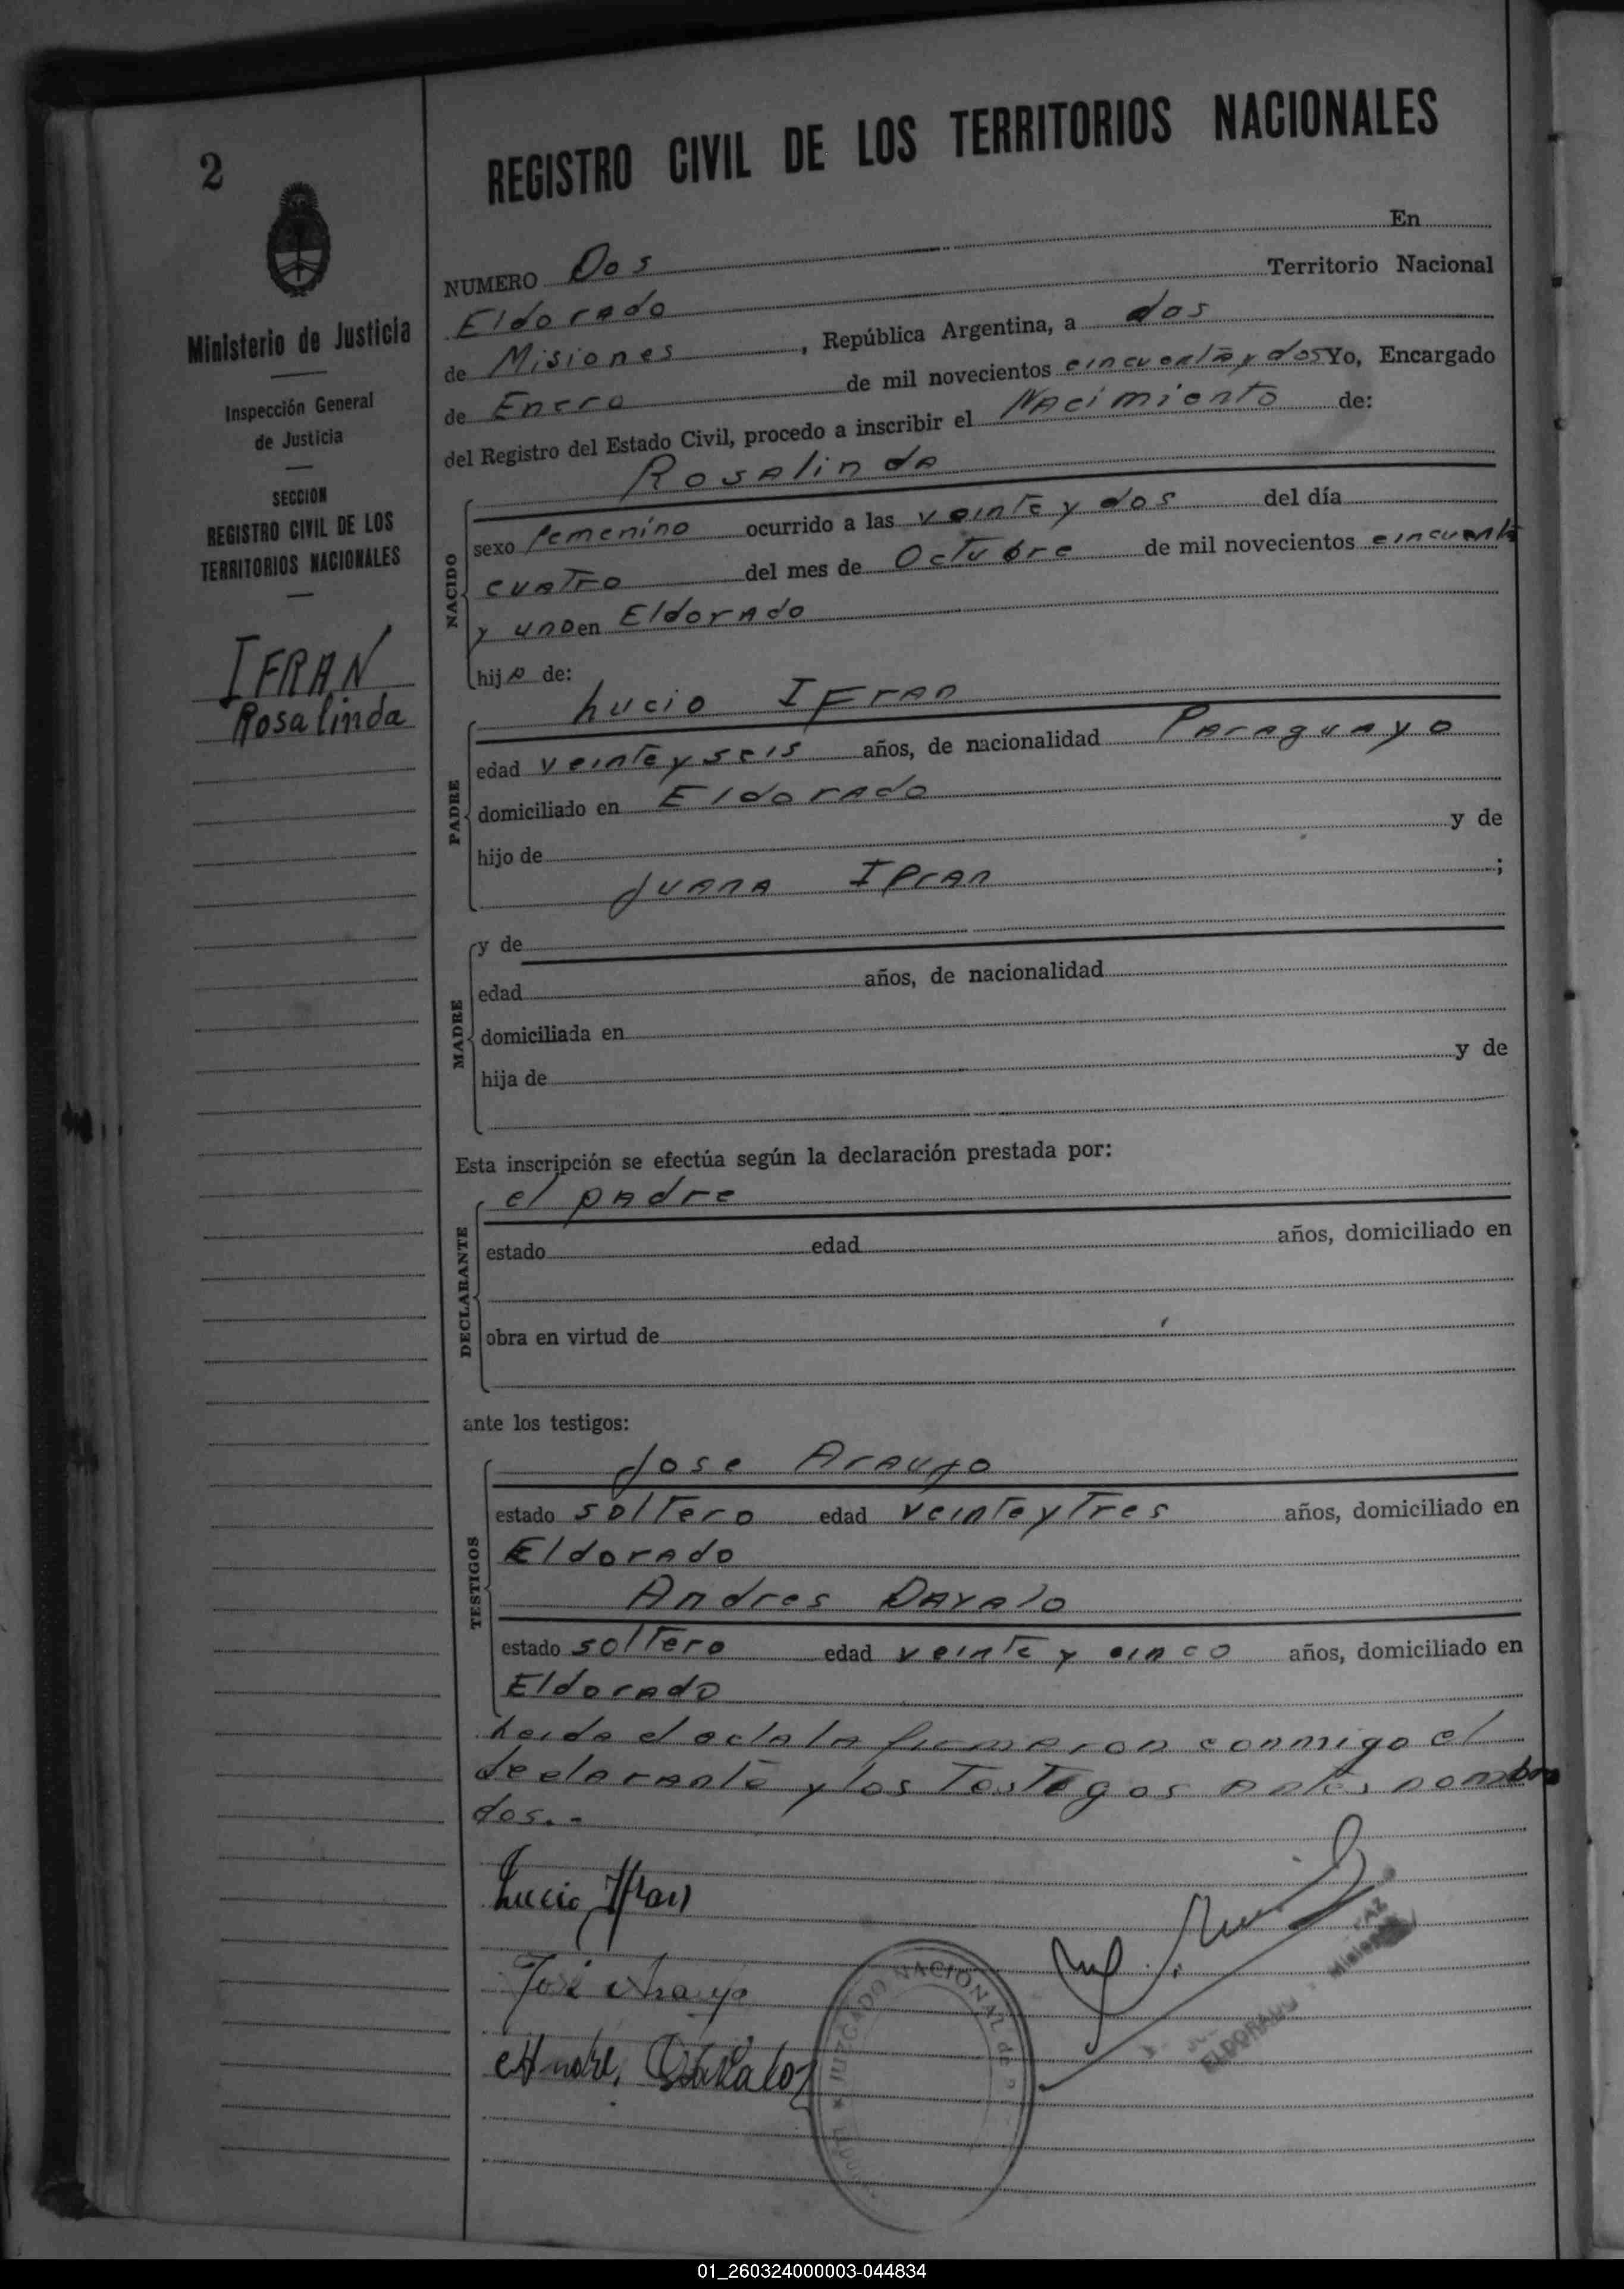 2
Ministerio de Justicia
Inspección General
de Justicia
SECCION
REGISTRO CIVIL DE LOS
TERRITORIOS NACIONALES
IFRAN
Rosalinda
REGISTRO CIVIL DE LOS TERRITORIOS NACIONALES
NUMERO Dos En
Eldorado Territorio Nacional
de Misiones, República Argentina, a dos
de Enero de mil novecientos cincuenta y dos Yo, Encargado
del Registro del Estado Civil, procedo a inscribir el Nacimiento de:
NACIDO
Rosalinda
sexo femenino ocurrido a las veinte y dos del día
cuatro del mes de Octubre de mil novecientos cincuenta
y uno en Eldorado
hija de:
PADRE
Lucio IFran
edad veinte y seis años, de nacionalidad Paraguayo
domiciliado en Eldorado
hijo de y de
Juana Ifran ;
MADRE
y de
edad años, de nacionalidad
domiciliada en
hija de y de
Esta inscripción se efectúa según la declaración prestada por:
DECLARANTE
el padre
estado edad años, domiciliado en
obra en virtud de
ante los testigos:
TESTIGOS
Jose Araujo
estado soltero edad veinte y tres años, domiciliado en
Eldorado
Andres Davalo
estado soltero edad veinte y cinco años, domiciliado en
Eldorado
Leida el acta la firmaron conmigo el
declarante y los Testigos antes nombra
dos.-
Lucio Ifran
José Araujo
JUZGADO NACIONAL DE
ELDORADO Misiones
01_260324000003-044834